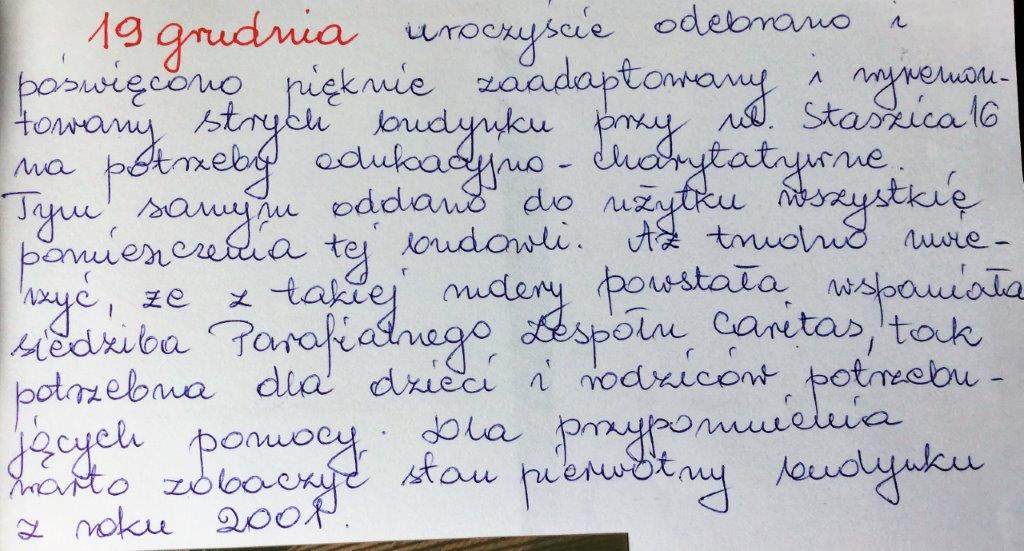 19 grudnia uroczyście odebrano i
poświęcono pięknie zaadaptowany i wyremon-
towany strych budynku przy ul. Staszica 16
na potrzeby edukacyjno - charytatywne.
Tym samym oddano do użytku wszystkie
pomieszczenia tej budowli. Aż trudno uwie-
rzyć, że z takiej rudery powstała wspaniała
siedziba Parafialnego Zespołu Caritas, tak
potrzebna dla dzieci i rodziców potrzebu-
jących pomocy. Dla przypomnienia
warto zobaczyć stan pierwotny budynku
z roku 2001.